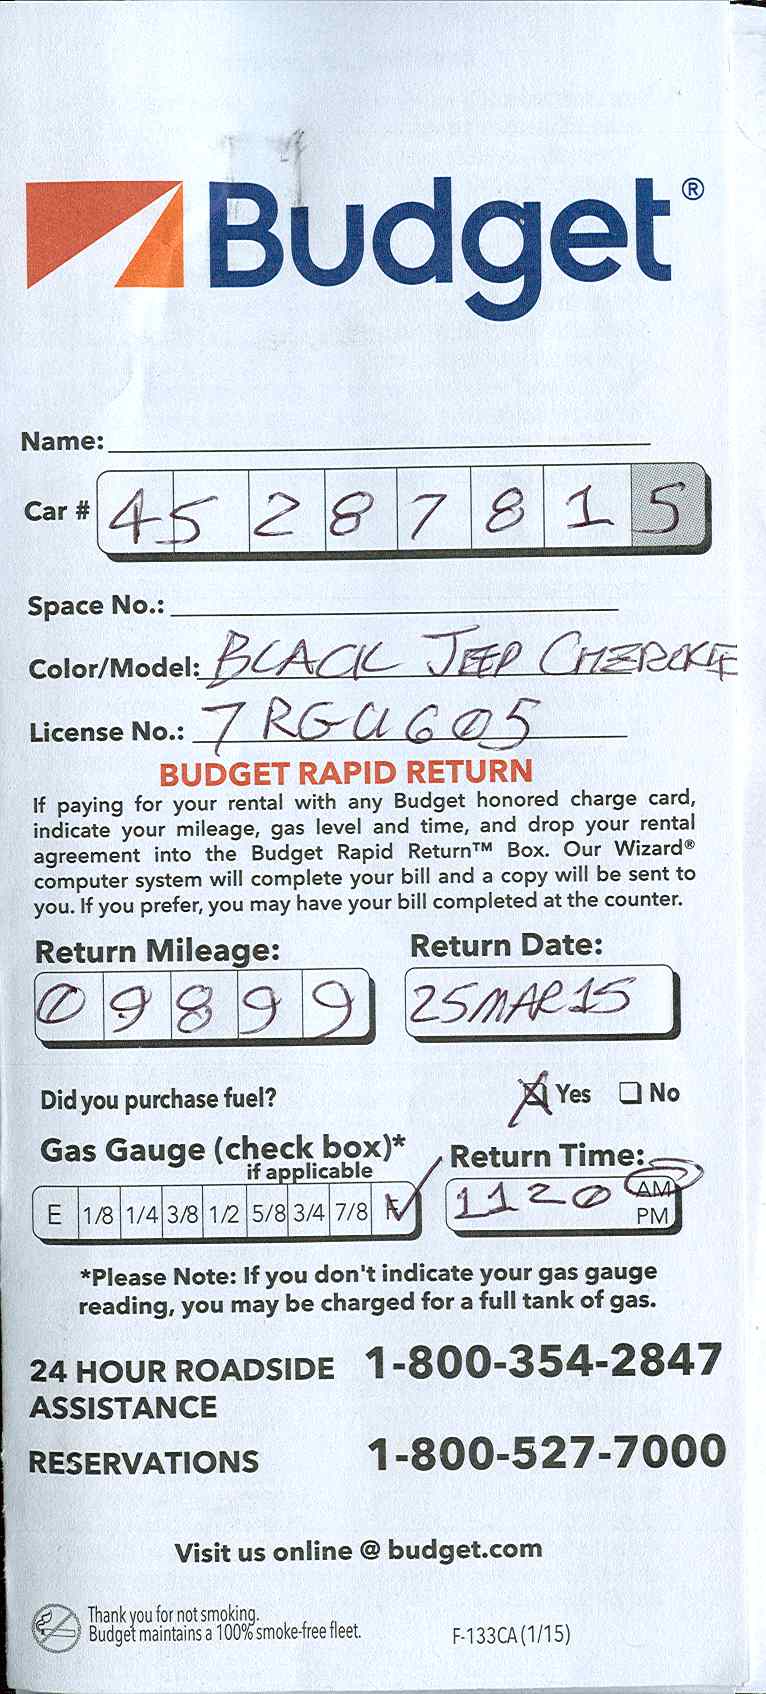 Budget®
Name:
Car # 4 5 2 8 7 8 1 5
Space No.:
Color/Model: BLACK JEEP CHEROKEE
License No.: 7RGU605
BUDGET RAPID RETURN
If paying for your rental with any Budget honored charge card,
indicate your mileage, gas level and time, and drop your rental
agreement into the Budget Rapid Return™ Box. Our Wizard®
computer system will complete your bill and a copy will be sent to
you. If you prefer, you may have your bill completed at the counter.
Return Mileage: Return Date:
0 9 8 9 9 25MAR15
Did you purchase fuel? Yes No
Gas Gauge (check box)* Return Time:
if applicable
E 1/8 1/4 3/8 1/2 5/8 3/4 7/8 F 1120 AM
PM
*Please Note: If you don't indicate your gas gauge
reading, you may be charged for a full tank of gas.
24 HOUR ROADSIDE 1-800-354-2847
ASSISTANCE
RESERVATIONS 1-800-527-7000
Visit us online @ budget.com
Thank you for not smoking.
Budget maintains a 100% smoke-free fleet. F-133CA (1/15)